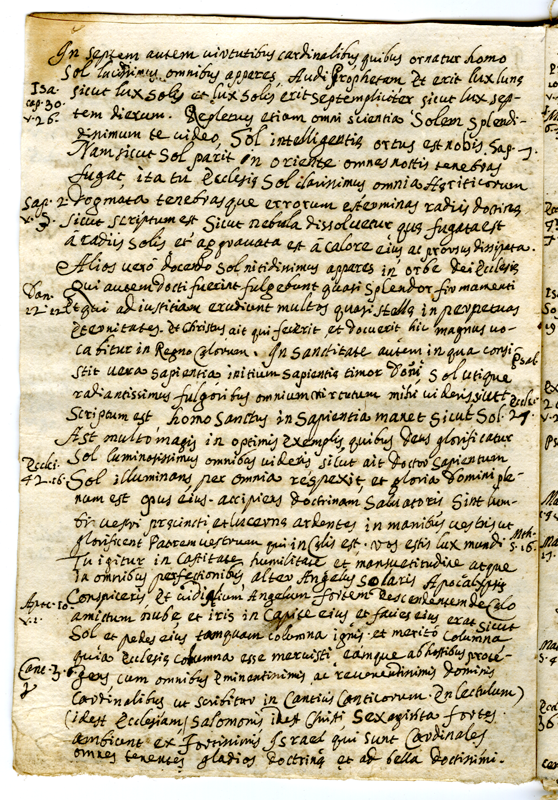 In septem autem virtutibus cardinalibus quibus ornatur homo
Sol lucidissimus omnibus appares, Audi Prophetam Et erit lux lunę
Isa. cap. 30. v. 26. sicut lux Solis et lux Solis erit septempliciter sicut lux sep-
tem dierum. Repletus etiam omni scientia Solem splendi-
dissimum te video, Sol intelligentię ortus est nobis. Sap. 5.
Nam sicut Sol parit in oriente omnes noctis tenebras
fugat, ita tu Ecclesię Sol clarissimus omnia
Sap. 2. v. 3. Dogmata tenebrasque errorum exterminas radijs doctrinę
sicut scriptum est Sicut nebula dissolvetur quę fugata est
à radijs Solis et aggravata est à calore eius ac prorsus dissipata.
Alios vero docendo Sol nitidissimus appares in orbe dei Ecclesię
Dan. 12 Qui autem docti fuerint fulgebunt quasi splendor firmamenti
et qui ad iustitiam erudiunt multos quasi stellę in perpetuas
Eternitates. Et Christus ait qui fecerit et docuerit hic magnus vo-
cabitur in Regno Cęlorum. In Sanctitate autem in qua consi-
stit vera sapientia, initium Sapientię timor Domini, Sol utique Psal
radiantissimus fulgoribus omnium virtutum mihi videris sicut
scriptum est, homo Sanctus in Sapientia manet Sicut Sol. Eccli. 27.
Ast multo magis in optimis exemplis quibus Deus glorificatur
Eccli. 42. 16. Sol luminosissimus omnibus videris sicut ait doctor Sapientum
Sol illuminans per omnia respexit, et gloria Domini ple-
num est opus eius. accipiens doctrinam Salvatoris Sint lum-
bi vestri pręcincti et lucernę ardentes in manibus vestris ut
glorificent Patrem vestrum qui in Cęlis est. vos estis lux mundi Mth. 5. 16.
Tu igitur in Castitate humilitate et mansuetudine atque
in omnibus perfectionibus, alter Angelus Solaris Apocalypsis
Apoc. 10. v. 1. Conspiceris, Et vidi alium Angelum fortem Descendentem de Cęlo
amictum nube et iris in Capite eius et facies eius erat sicut
Sol et pedes eius tamquam columna ignis. et merito Columna
Cant. 3. 6. 7 quia Ecclesię Columna esse meruisti eamque ab hostibus prote-
gens cum omnibus Eminentissimis ac reverendissimis dominis
Cardinalibus ut scribitur in Canticis Canticorum. En lectulum
(idest Ecclesiam) Salomonis idest Christi Sexaginta fortes
ambiunt ex fortissimis Israel qui sunt Cardinales
omnes tenentes gladios doctrinę et ad bella doctissimi.